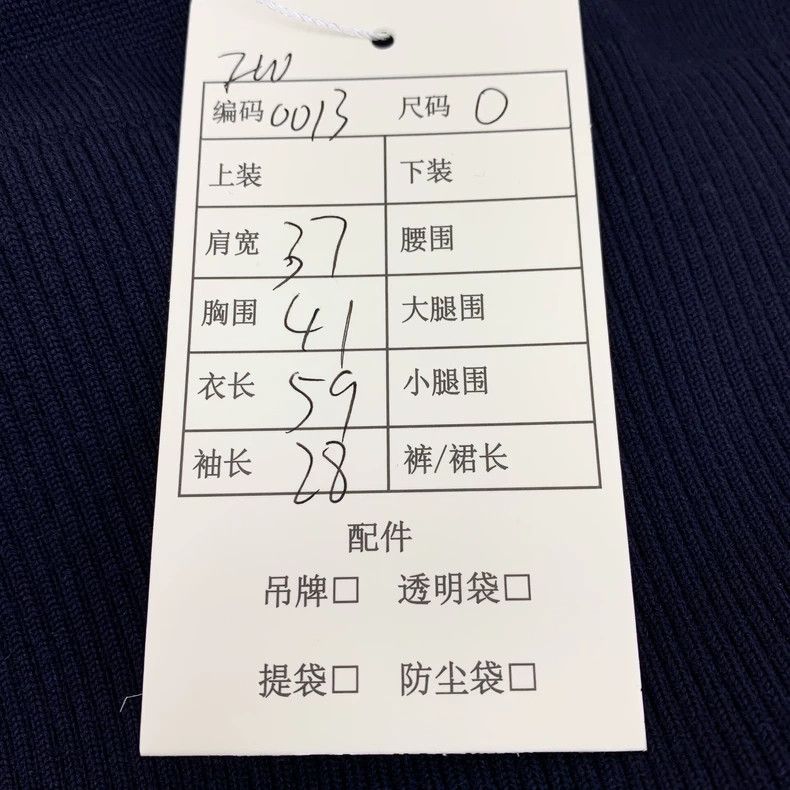 ZW
编码0013 尺码 0
上装 下装
肩宽 37 腰围
胸围 41 大腿围
衣长 59 小腿围
袖长 28 裤/裙长
配件
吊牌□ 透明袋□
提袋□ 防尘袋□